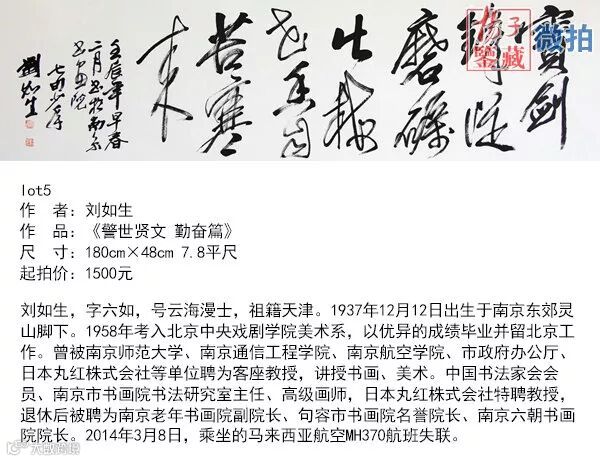 寶劍
鋒從
磨礪
出梅
花香自
苦寒
来
壬辰年早春
二月书於南京
书画院
劉如生
子
鑒藏
微拍
lot5
作 者：刘如生
作 品：《警世贤文 勤奋篇》
尺 寸：180cm×48cm 7.8平尺
起拍价：1500元
刘如生，字六如，号云海漫士，祖籍天津。1937年12月12日出生于南京东郊灵
山脚下。1958年考入北京中央戏剧学院美术系，以优异的成绩毕业并留北京工
作。曾被南京师范大学、南京通信工程学院、南京航空学院、市政府办公厅、
日本丸红株式会社等单位聘为客座教授，讲授书画、美术。中国书法家会会
员、南京市书画院书法研究室主任、高级画师，日本丸红株式会社特聘教授，
退休后被聘为南京老年书画院副院长、句容市书画院名誉院长、南京六朝书画
院院长。2014年3月8日，乘坐的马来西亚航空MH370航班失联。